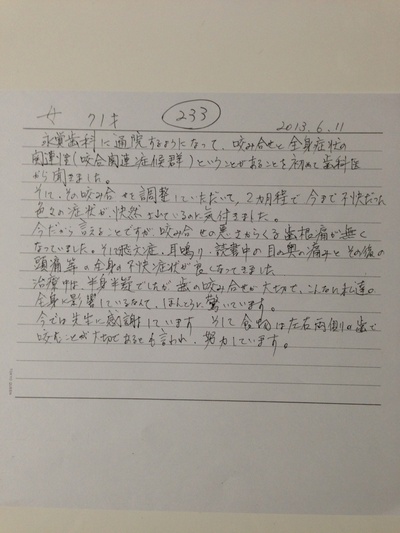 女 71才 233 2013.6.11
永質歯科に通院するようになって、咬み合せと全身症状の
関連性(咬合関連症候群)ということがあることを初めて歯科医
から聞きました。
そして、その咬み合せを調整していただいて、2ヵ月程で今まで不快だった
色々の症状が、快然
しているのに気付きました。
今だから言えることですが咬み合せの悪さからくる歯根痛が無く
なっていました。そして飛文症、耳鳴り、読書中の目の奥の痛みとその後の
頭痛等の全身の不快症状が良くなってきました
治療中は、半身半疑でしたが歯の咬み合せが大切で、こんなに私達の
全身に影響しているなんて、ほんとうに驚いています。
今では先生に感謝しています そして食物は左右両側の歯で
咬むことが大切であるとも言われ、努力しています。